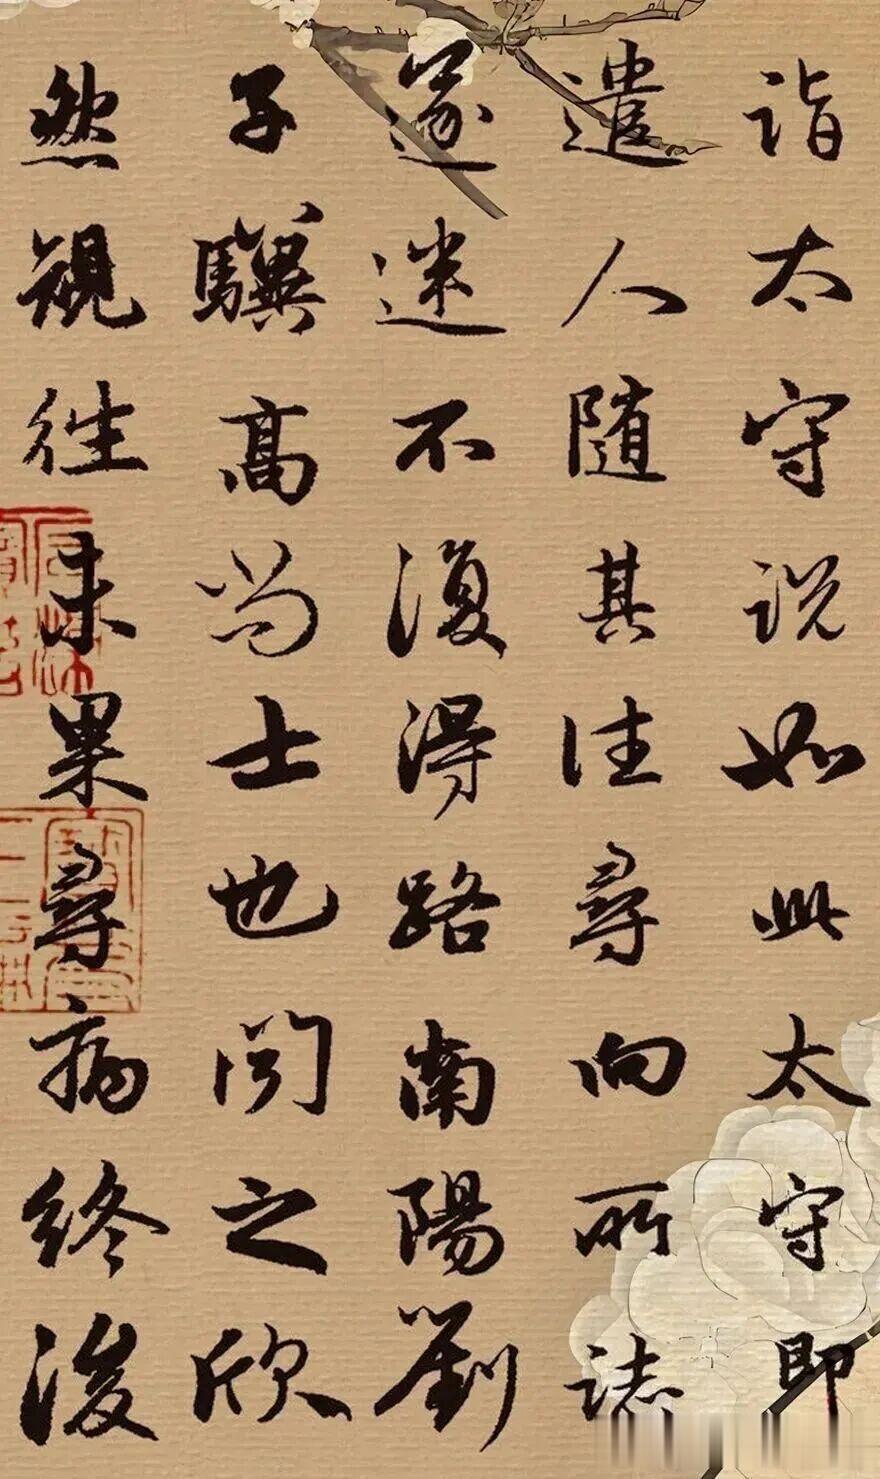 詣太守說如此太守即
遣人隨其往尋向所誌
遂迷不復得路南陽劉
子驥高尚士也聞之欣
然規往未果尋病終後